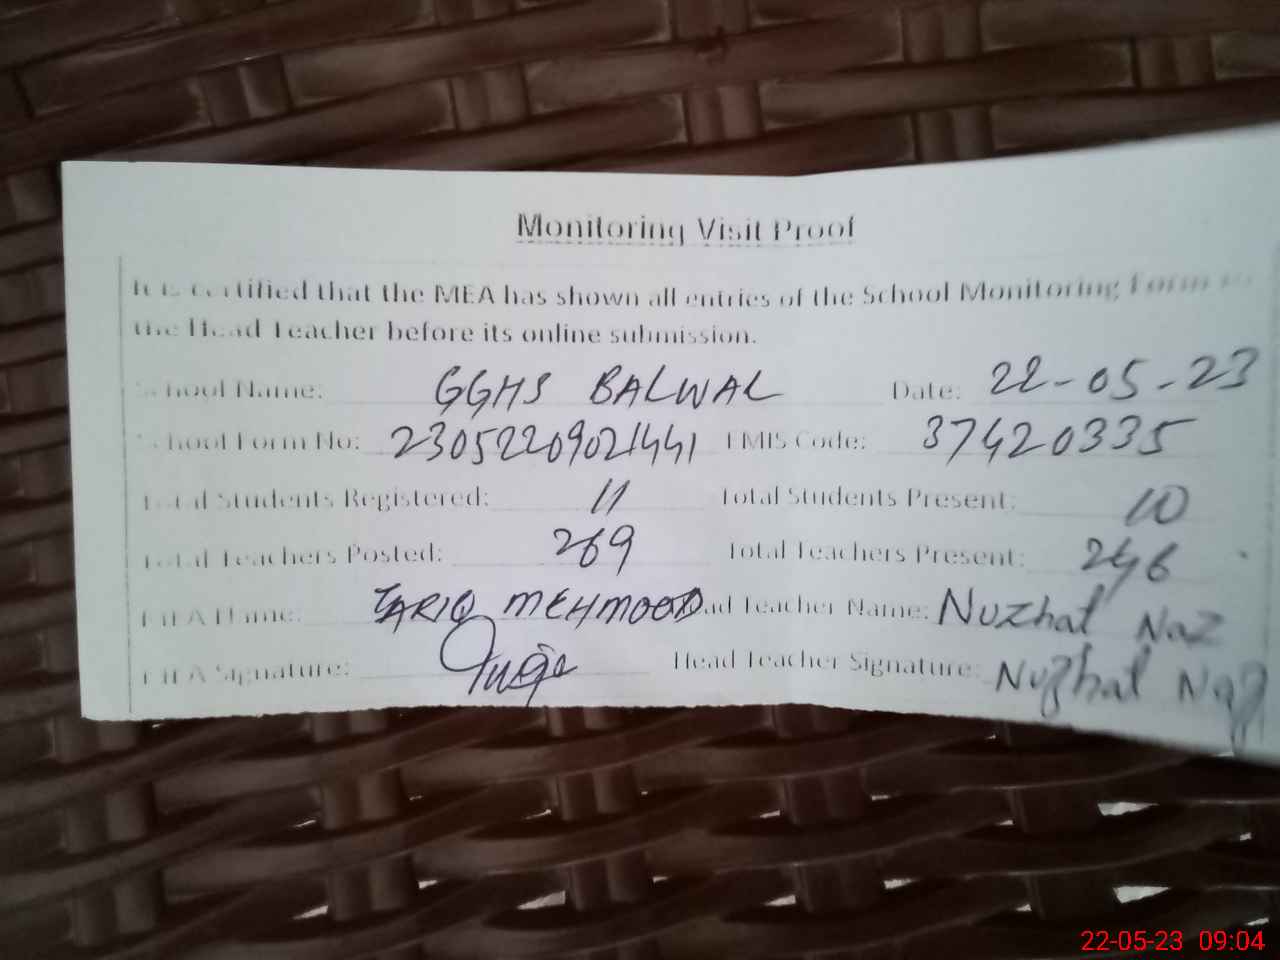 Monitoring Visit Proof
It is certified that the MEA has shown all entries of the School Monitoring Form to
the Head Teacher before its online submission.
School Name: GGHS BALWAL Date: 22-05-23
School Form No: 23052209021441 EMIS Code: 37420335
Total Students Registered: 11 Total Students Present: 10
Total Teachers Posted: 269 Total Teachers Present: 246
MEA Name: TARIQ MEHMOOD Head Teacher Name: Nuzhat Naz
MEA Signature: Head Teacher Signature: Nuzhat Naz
22-05-23 09:04